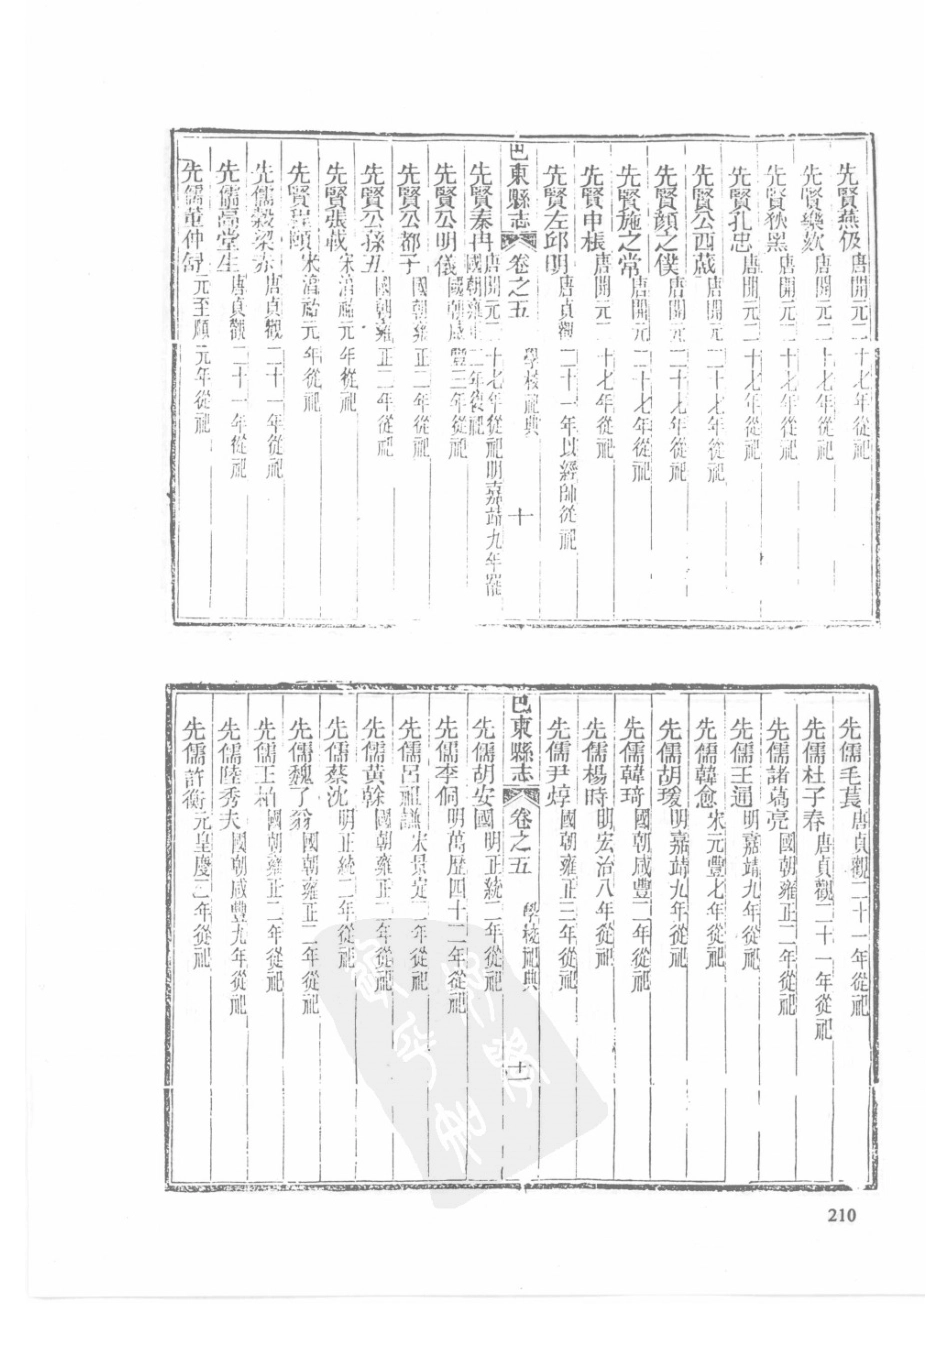 先賢燕伋唐開元二十七年從祀
先賢樂欬唐開元二十七年從祀
先賢狄黑唐開元二十七年從祀
先賢孔忠唐開元二十七年從祀
先賢公西蒧唐開元二十七年從祀
先賢顏之僕唐開元二十七年從祀
先賢施之常唐開元二十七年從祀
先賢申棖唐開元二十七年從祀
先賢左邱明唐貞觀二十一年以經師從祀
巴東縣志 卷之五 學校祀典 十
先賢秦冉唐開元二十七年從祀明嘉靖九年罷
國朝雍正二年復祀
先賢公明儀國朝咸豐三年從祀
先賢公都子國朝雍正二年從祀
先賢公孫丑國朝雍正二年從祀
先賢張載宋淳祐元年從祀
先賢程頤宋淳祐元年從祀
先儒穀梁赤唐貞觀二十一年從祀
先儒高堂生唐貞觀二十一年從祀
先儒董仲舒元至順元年從祀
先儒毛萇唐貞觀二十一年從祀
先儒杜子春唐貞觀二十一年從祀
先儒諸葛亮國朝雍正二年從祀
先儒王通明嘉靖九年從祀
先儒韓愈宋元豐七年從祀
先儒胡瑗明嘉靖九年從祀
先儒韓琦國朝咸豐二年從祀
先儒楊時明宏治八年從祀
先儒尹焞國朝雍正三年從祀
巴東縣志 卷之五 學校祀典 十一
先儒胡安國明正統二年從祀
先儒李侗明萬歷四十二年從祀
先儒呂祖謙宋景定二年從祀
先儒黄榦國朝雍正二年從祀
先儒蔡沈明正統二年從祀
先儒魏了翁國朝雍正二年從祀
先儒王柏國朝雍正二年從祀
先儒陸秀夫國朝咸豐九年從祀
先儒許衡元皇慶二年從祀
210